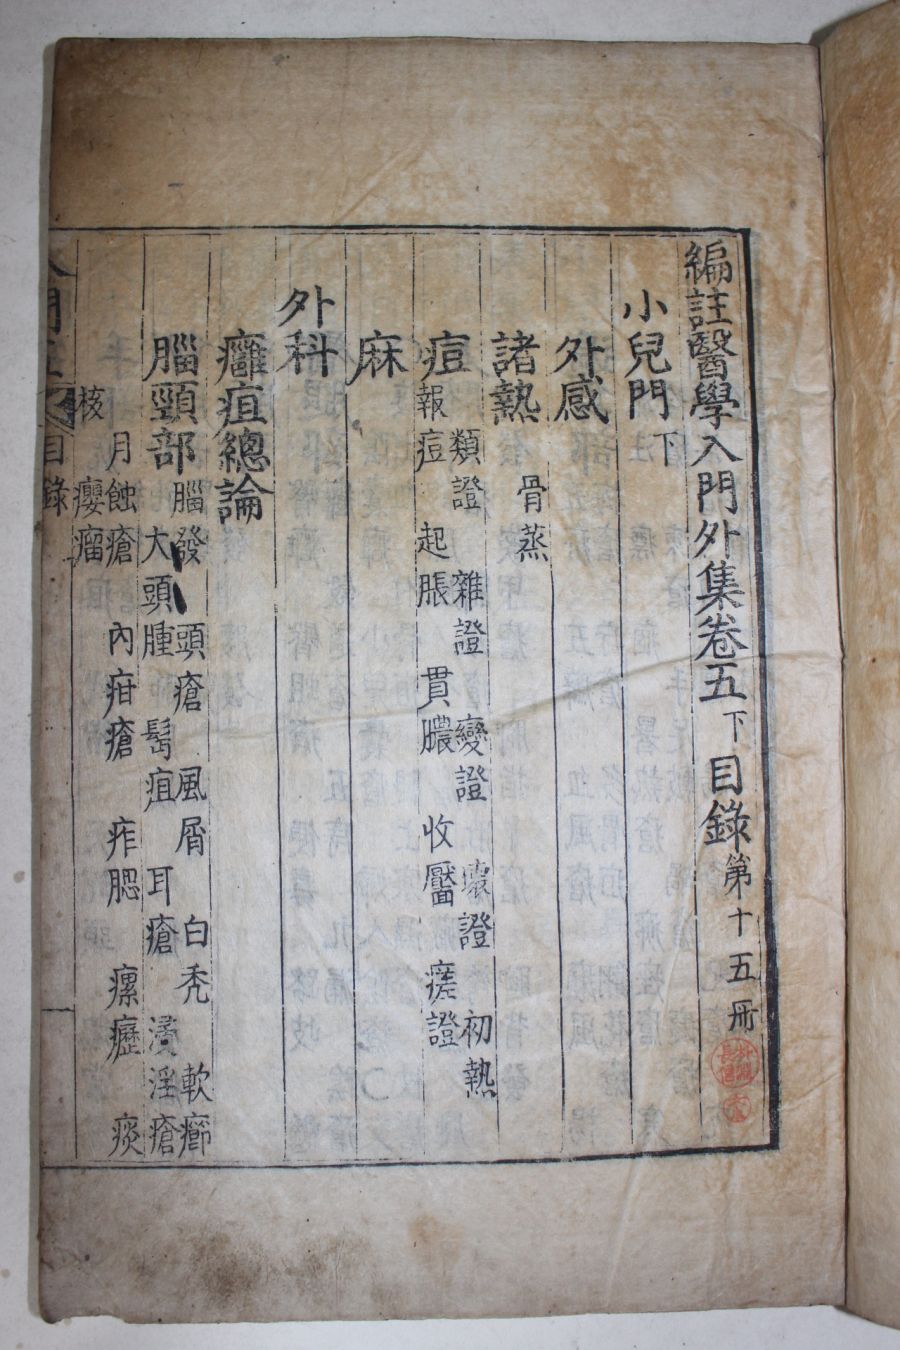 編註醫學入門外集卷五下目錄第十五冊
小兒門下
外感
諸熱 骨蒸
痘 類證 雜證 變證 壞證 初熱
報痘 起脹 貫膿 收靨 瘥證
麻
外科
癰疽總論
腦頸部 腦發 頭瘡 風屑 白禿 軟癤
大頭腫 髩疽 耳瘡 浸淫瘡
月蝕瘡 內疳瘡 痄腮 瘰癧 痰
核 癭瘤
目錄